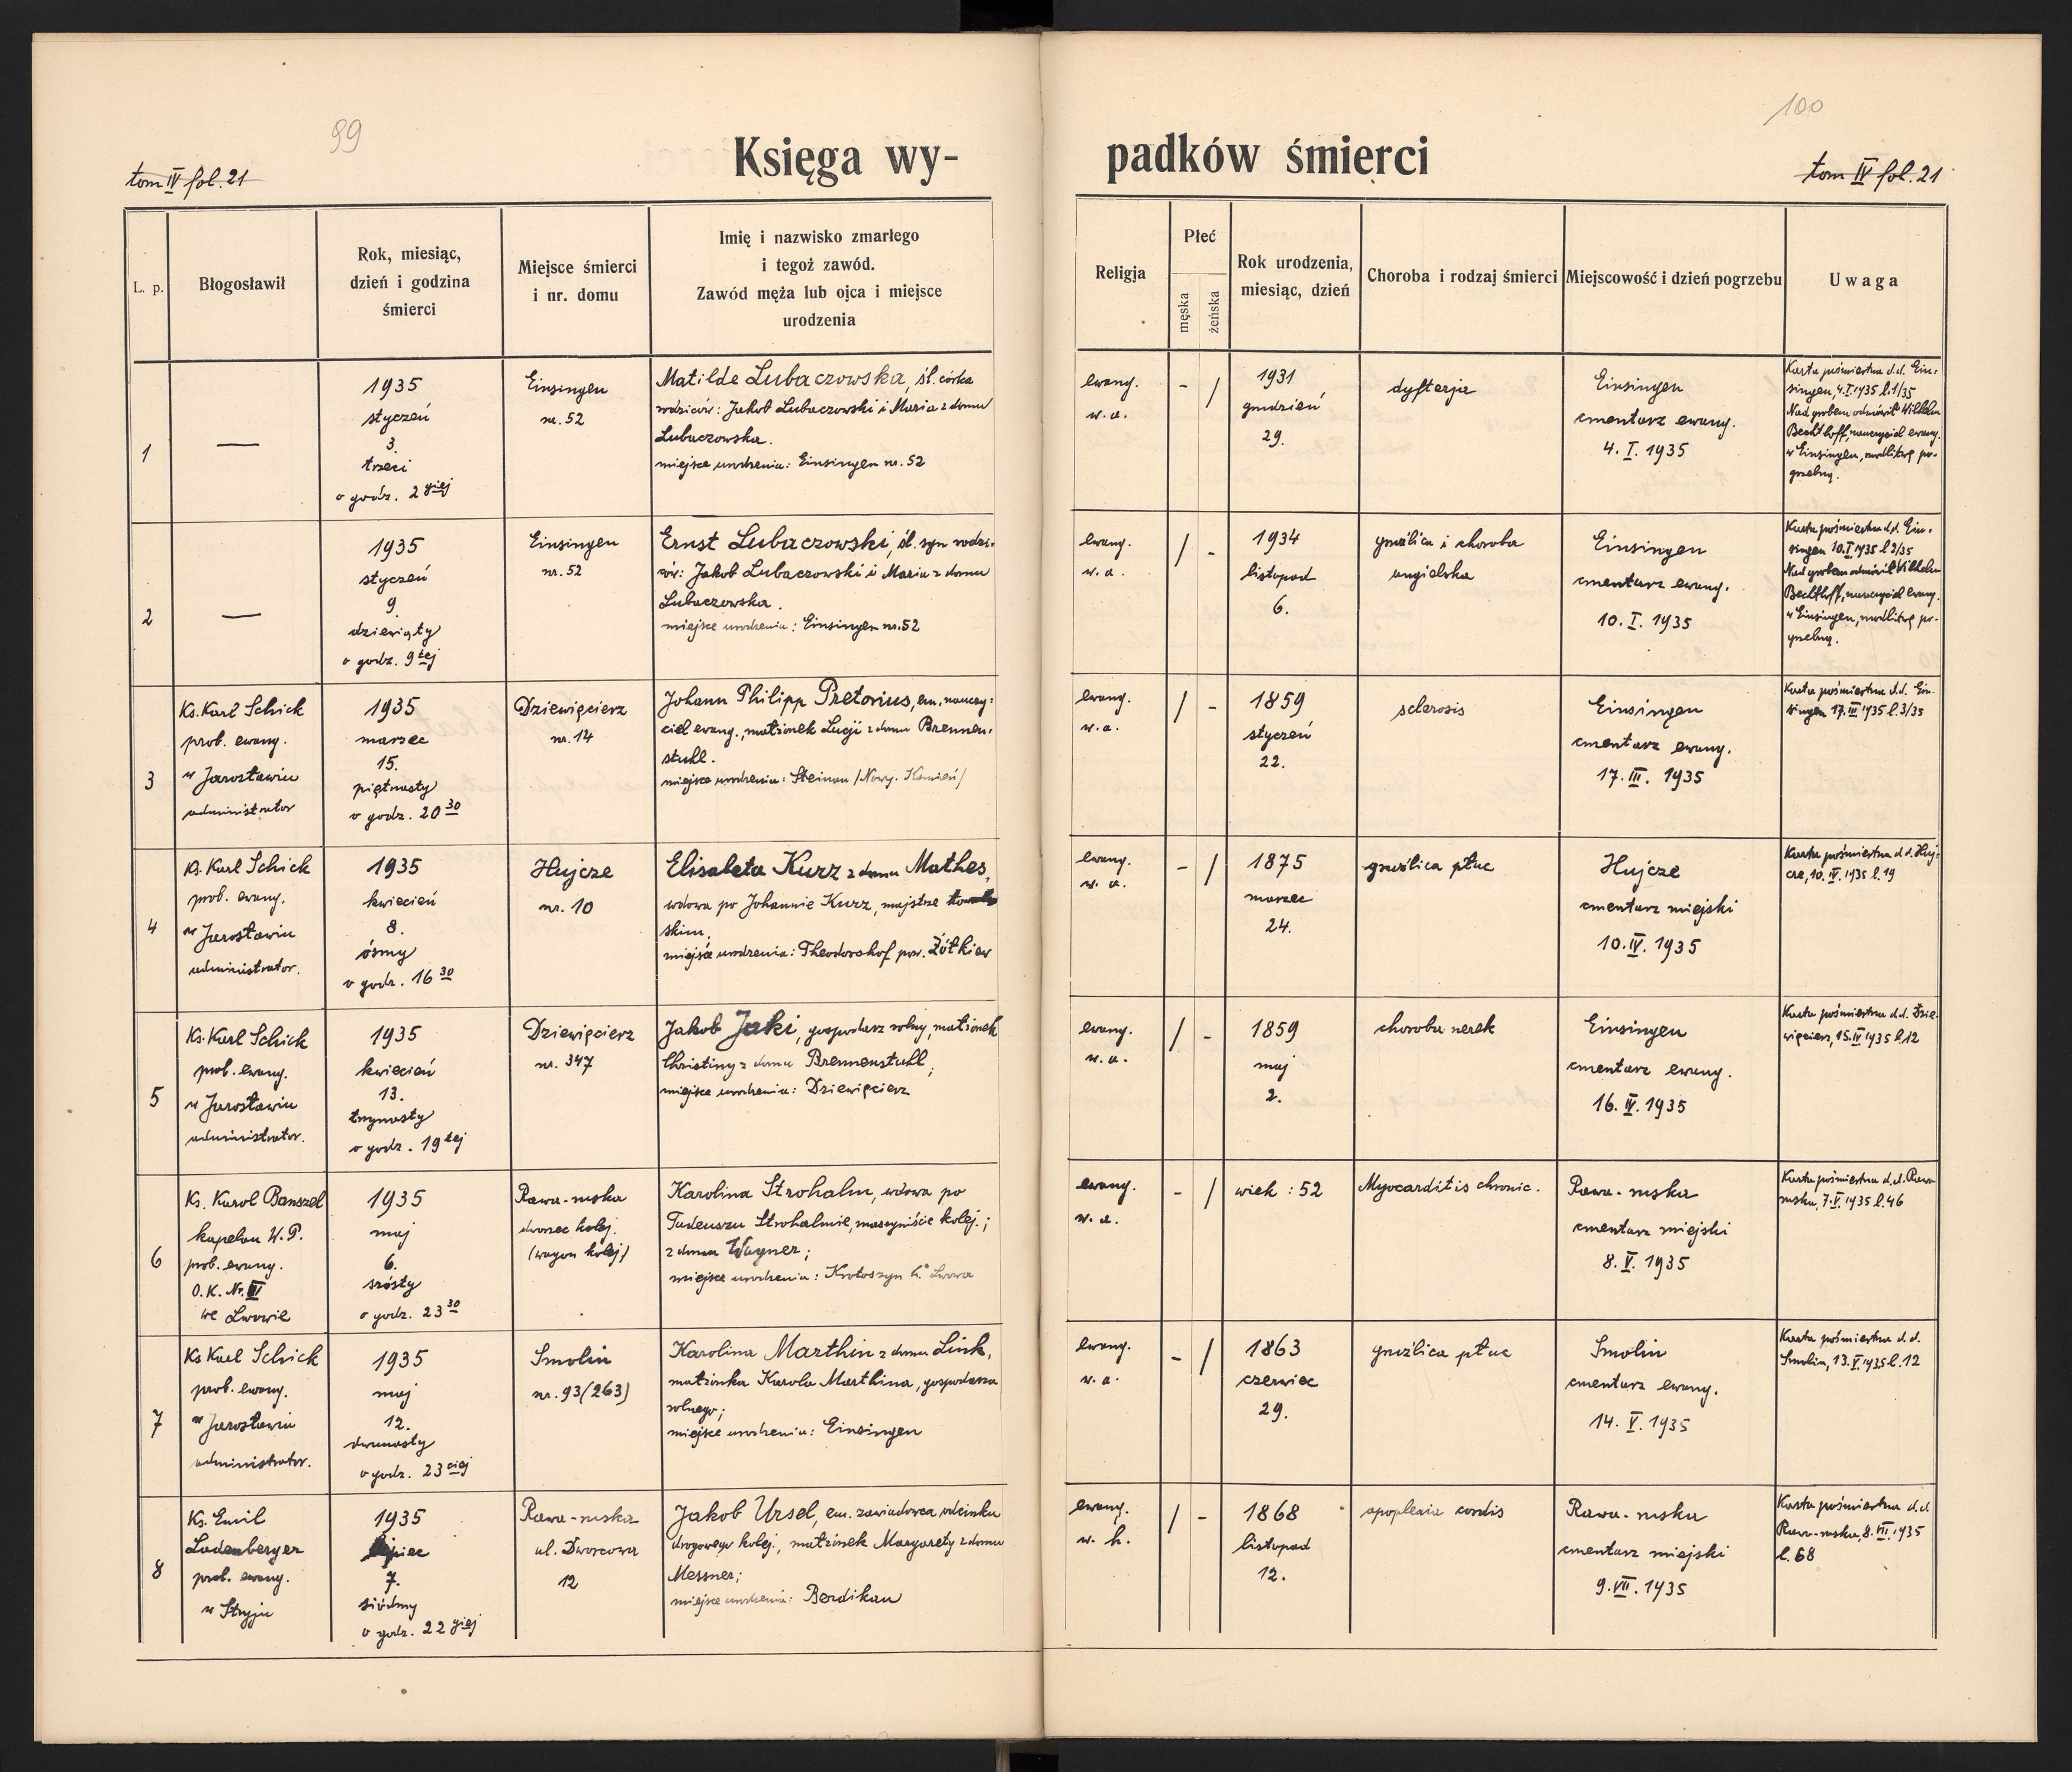 99
100
tom IV fol. 21
tom IV fol. 21
Księga wy-
padków śmierci
L. p.
Błogosławił
Rok, miesiąc,
dzień i godzina
śmierci
Miejsce śmierci
i nr. domu
Imię i nazwisko zmarłego
i tegoż zawód.
Zawód męża lub ojca i miejsce
urodzenia
Religja
Płeć
męska
żeńska
Rok urodzenia,
miesiąc, dzień
Choroba i rodzaj śmierci
Miejscowość i dzień pogrzebu
Uwaga
1
—
1935
styczeń
3.
trzeci
o godz. 2 giej
Einsingen
nr. 52
Matilde Lubaczowska, śl. córka
rodziców: Jakob Lubaczowski i Maria z domu
Lubaczowska.
miejsce urodzenia: Einsingen nr. 52
ewang.
w. a.
- /
1931
grudzień
29.
dyfterja
Einsingen
cmentarz ewang.
4. I. 1935
Karta pośmiertna d.d. Ein:
singen, 4.I.1935 l.1/35
Nad grobem odmówił Wilhelm
Bechtloff, nauczyciel ewang.
w Einsingen, modlitwę po-
grzebną.
2
—
1935
styczeń
9.
dziewiąty
o godz. 9 tej
Einsingen
nr. 52
Ernst Lubaczowski, śl. syn rodzi:
ców: Jakob Lubaczowski i Maria z domu
Lubaczowska.
miejsce urodzenia: Einsingen nr. 52
ewang.
w. a.
/ -
1934
listopad
6.
gruźlica i choroba
angielska
Einsingen
cmentarz ewang.
10. I. 1935
Karta pośmiertna d.d. Ein:
singen 10.I.1935 l.2/35
Nad grobem odmówił Wilhelm
Bechtloff, nauczyciel ewang.
w Einsingen, modlitwę po-
grzebną.
3
Ks. Karl Schick
prob. ewang.
w Jarosławiu
administrator
1935
marzec
15.
piętnasty
o godz. 20 30
Dziewięcierz
nr. 14
Johann Philipp Pretorius, em. nauczy:
ciel ewang., małżonek Lucji z domu Brennen:
stuhl.
miejsce urodzenia: Steinau /Nowy Kamień/
ewang.
w. a.
/ -
1859
styczeń
22.
sclerosis
Einsingen
cmentarz ewang.
17. III. 1935
Karta pośmiertna d.d. Ein-
singen 17.III 1935 l.3/35
4
Ks. Karl Schick
prob. ewang.
w Jarosławiu
administrator.
1935
kwiecień
8.
ósmy
o godz. 16 30
Hujcze
nr. 10
Elisabeta Kurz z domu Mathes,
wdowa po Johannie Kurz, majstrze
skim.
miejsce urodzenia: Theodorshof pow. Żółkiew
ewang.
w. a.
- /
1875
marzec
24.
gruźlica płuc
Hujcze
cmentarz miejski
10. IV. 1935
Karta pośmiertna d.d. Huj:
cze, 10. IV. 1935 l. 19
5
Ks. Karl Schick
prob. ewang.
w Jarosławiu
administrator.
1935
kwiecień
13.
trzynasty
o godz. 19 tej
Dziewięcierz
nr. 347
Jakob Jaki, gospodarz rolny, małżonek
Christiny z domu Brennenstuhl;
miejsce urodzenia: Dziewięcierz
ewang.
w. a.
/ -
1859
maj
2.
choroba nerek
Einsingen
cmentarz ewang.
16. IV. 1935
Karta pośmiertna d.d. Dzie-
więcierz, 15.IV 1935 l.12
6
Ks. Karol Banszel
kapelan W. P.
prob. ewang.
O. K. Nr. VI
we Lwowie
1935
maj
6.
szósty
o godz. 23 30
Rawa-ruska
dworzec kolej.
(wagon kolej)
Karolina Strohalm, wdowa po
Tadeuszu Strohalmie, maszyniście kolej.;
z domu Wagner;
miejsce urodzenia: Krotoszyn k. Lwowa
ewang.
w. a.
- /
wiek: 52
Myocarditis chronic.
Rawa-ruska
cmentarz miejski
8. V. 1935
Karta pośmiertna d.d. Rawa
ruska, 7.V. 1935 l. 46
7
Ks Karl Schick
prob. ewang.
w Jarosławiu
administrator.
1935
maj
12.
dwunasty
o godz. 23 ciej
Smolin
nr. 93 (263)
Karolina Marthin z domu Link,
małżonka Karola Marthina, gospodarza
rolnego;
miejsce urodzenia: Einsingen
ewang.
w. a.
- /
1863
czerwiec
29.
gruźlica płuc
Smolin
cmentarz ewang.
14. V. 1935
Karta pośmiertna d.d.
Smolin, 13.V.1935 l.12
8
Ks. Emil
Ladenberger
prob. ewang.
w Stryju
1935
lipiec
7.
siódmy
o godz. 22 giej
Rawa-ruska
ul. Dworcowa
12
Jakob Ursel, em. zawiadowca odcinka
drogowego kolej., małżonek Margarety z domu
Messner;
miejsce urodzenia: Berdikau
ewang.
w. h.
/ -
1868
listopad
12.
apoplexia cordis
Rawa-ruska
cmentarz miejski
9. VII. 1935
Karta pośmiertna d.d.
Rawa-ruska, 8. VII. 1935
l. 68